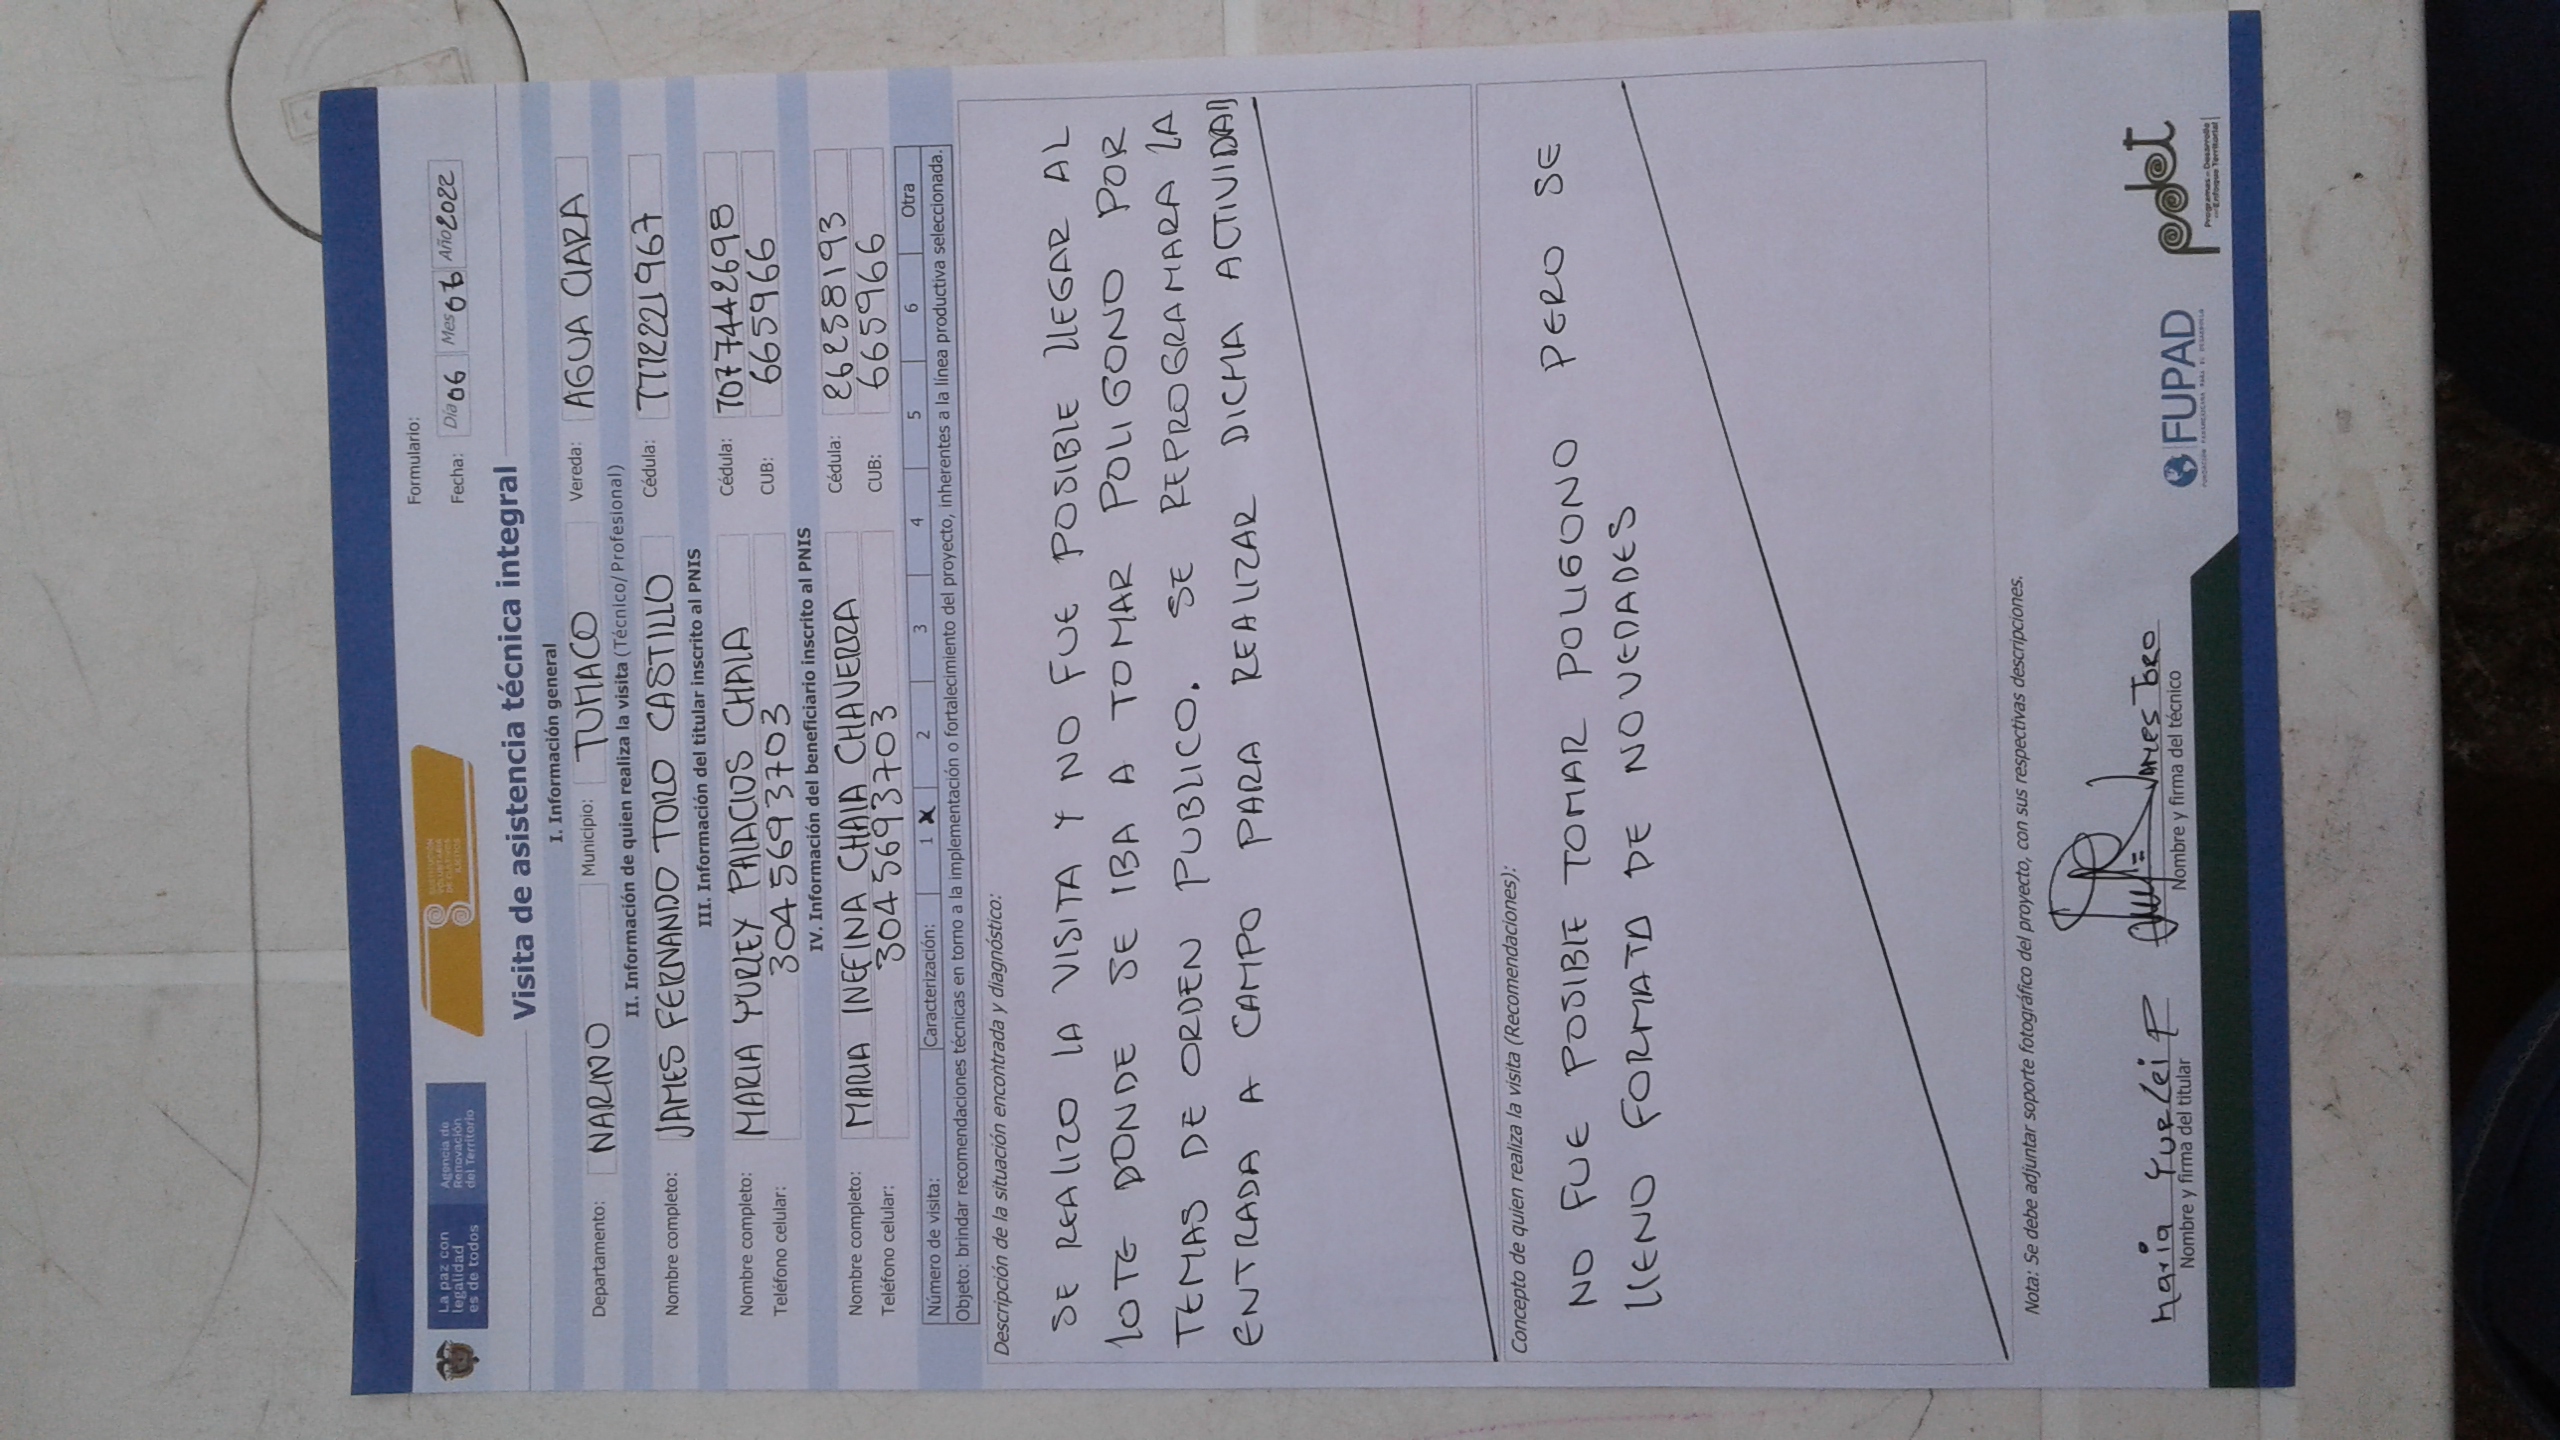 La paz con
legalidad
es de todos
Agencia de
Renovación
del Territorio
SUSTITUCIÓN
VOLUNTARIA
DE CULTIVOS
ILÍCITOS
Formulario:
Fecha: Día 06 Mes 06 Año 2022
Visita de asistencia técnica integral
I. Información general
Departamento: NARINO Municipio: TUMACO Vereda: AGUA CLARA
II. Información de quien realiza la visita (Técnico/Profesional)
Nombre completo: JAMES FERNANDO TORO CASTILLO Cédula:
III. Información del titular inscrito al PNIS
Nombre completo: MARIA YURLEY PALACIOS CHALA Cédula: 1077442698
Teléfono celular: 3045693703 CUB: 665966
IV. Información del beneficiario inscrito al PNIS
Nombre completo: MARIA INEFINA CHALA CHAVERRA Cédula:
Teléfono celular: 3045693703 CUB: 665966
Número de visita: Caracterización: 1 X 2 3 4 5 6 Otra
Objeto: brindar recomendaciones técnicas en torno a la implementación o fortalecimiento del proyecto, inherentes a la línea productiva seleccionada.
Descripción de la situación encontrada y diagnóstico:
SE REALIZO LA VISITA Y NO FUE POSIBLE LLEGAR AL
LOTE DONDE SE IBA A TOMAR POLIGONO POR
TEMAS DE ORDEN PUBLICO. SE REPROGRAMARA LA
ENTRADA A CAMPO PARA REALIZAR DICHA ACTIVIDAD
Concepto de quien realiza la visita (Recomendaciones):
NO FUE POSIBLE TOMAR POLIGONO PERO SE
LLENO FORMATO DE NOVEDADES
Nota: Se debe adjuntar soporte fotográfico del proyecto, con sus respectivas descripciones.
Maria Yurlei P
Nombre y firma del titular
JAMES TORO
Nombre y firma del técnico
FUPAD
FUNDACIÓN PANAMERICANA PARA EL DESARROLLO
pdet
Programas de Desarrollo
con Enfoque Territorial